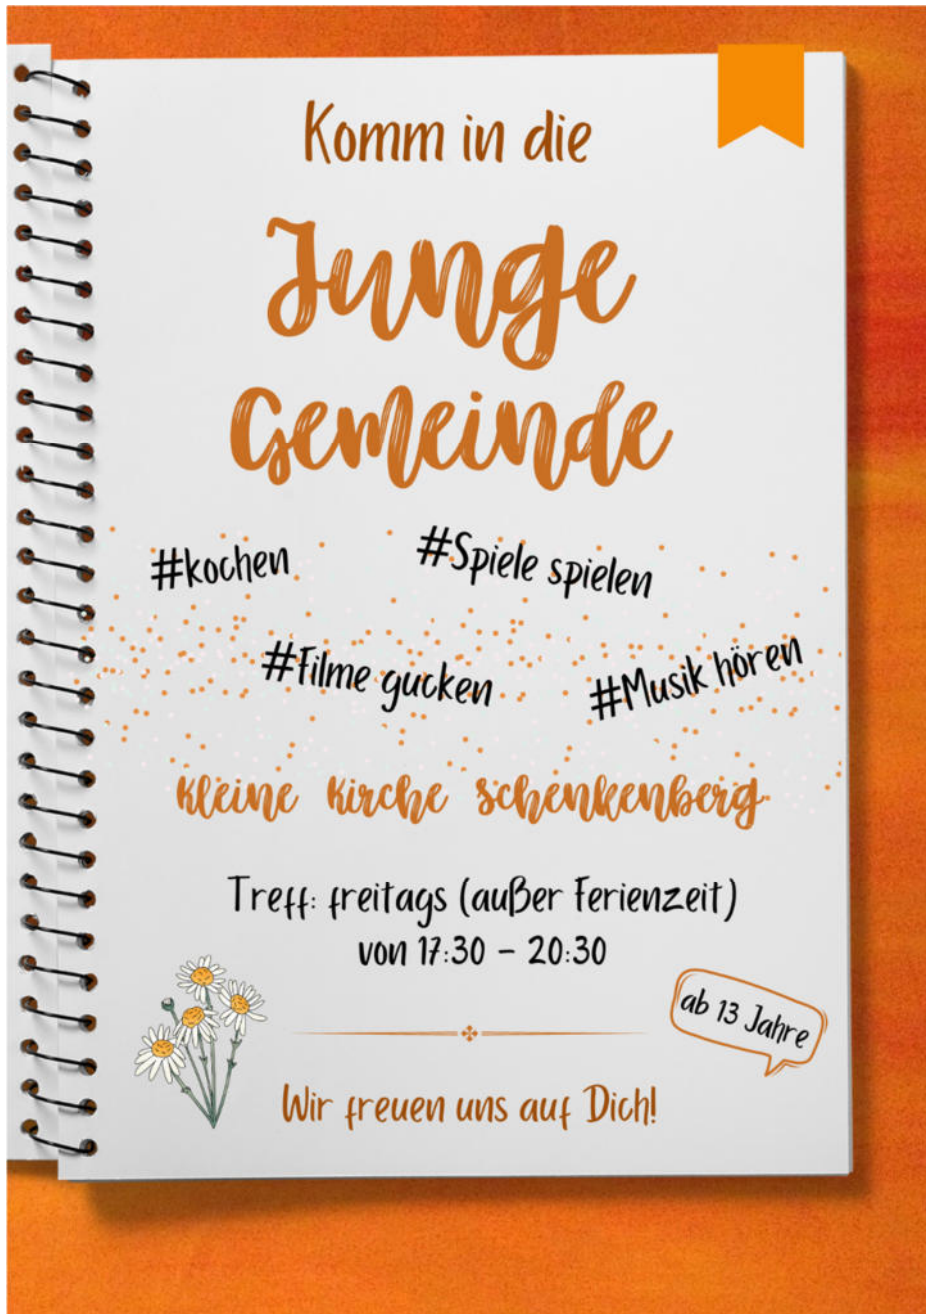 Komm in die
Junge
Gemeinde
#kochen
#Spiele spielen
#Filme gucken
#Musik hören
Kleine Kirche Schenkenberg
Treff: freitags (außer Ferienzeit)
von 17:30 – 20:30
ab 13 Jahre
Wir freuen uns auf Dich!